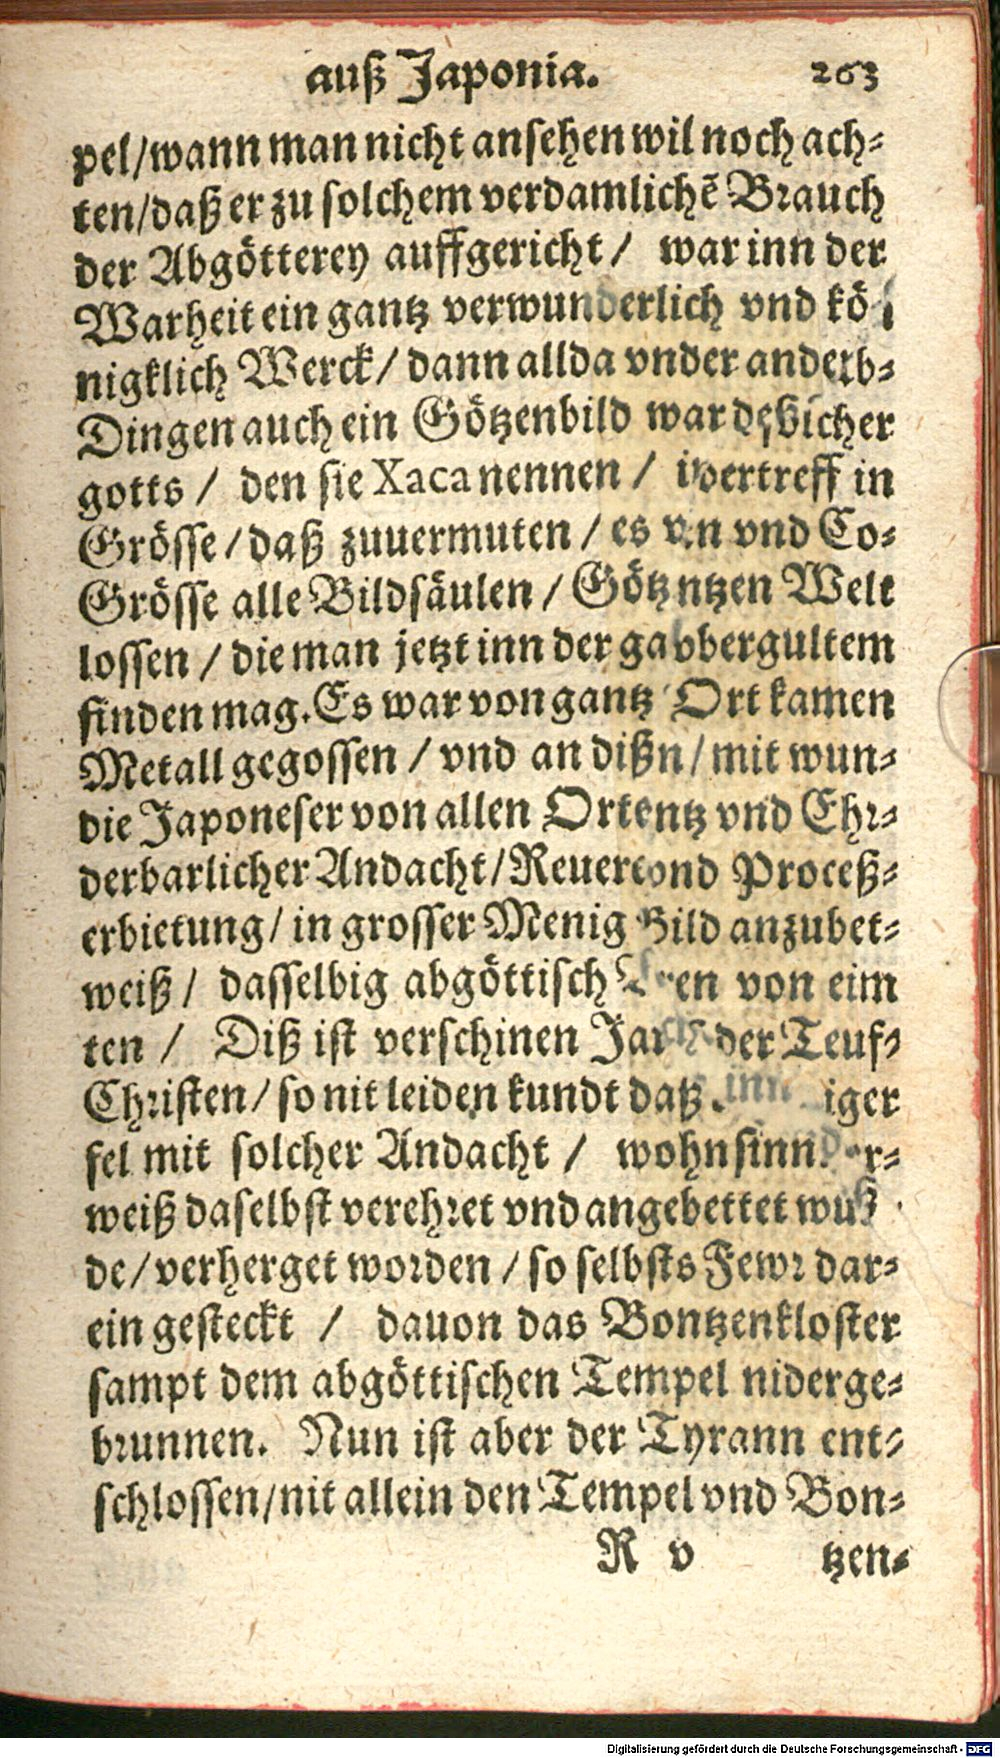 auß Japonia. 263
pel/wann man nicht ansehen wil noch ach-
ten/daß er zu solchem verdamlichē Brauch
der Abgötterey auffgericht/ war inn der
Warheit ein gantz verwunderlich vnd kö
nigklich Werck/ dann allda vnder
Dingen auch ein Götzenbild war
gotts/ den sie Xaca nennen/ in
Grösse/daß zuuermuten/es vnd Co-
Grösse alle Bildsäulen/ Welt
lossen/die man jetzt inn der vbergultem
finden mag. Es war von gantz Ort kamen
Metall gegossen/vnd an mit wun-
die Japoneser von allen vnd Ehr-
derbarlicher Andacht/ Proceß-
erbietung/in grosser Menig Bild anzubet-
weiß/ dasselbig abgöttisch von eim
ten/ Diß ist verschinen der Teuf-
Christen/so nit leiden kundt daß
fel mit solcher Andacht/
weiß daselbst verehret vnd angebettet
de/verherget worden/so selbsts Fewr dar-
ein gesteckt/ dauon das Bontzenkloster
sampt dem abgöttischen Tempel niderge-
brunnen. Nun ist aber der Tyrann ent-
schlossen/nit allein den Tempel vnd Bon-
R v tzen-
Digitalisierung gefördert durch die Deutsche Forschungsgemeinschaft - DFG